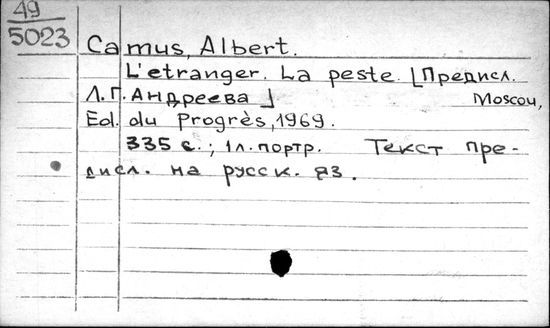 49
5023
Camus, Albert.
L'etranger. La peste. [Предисл.
Л.Г. Андреева] Moscou,
Ed. du Progrès, 1969.
335 с.; 1л. портр. Текст пре-
дисл. на русск. яз.